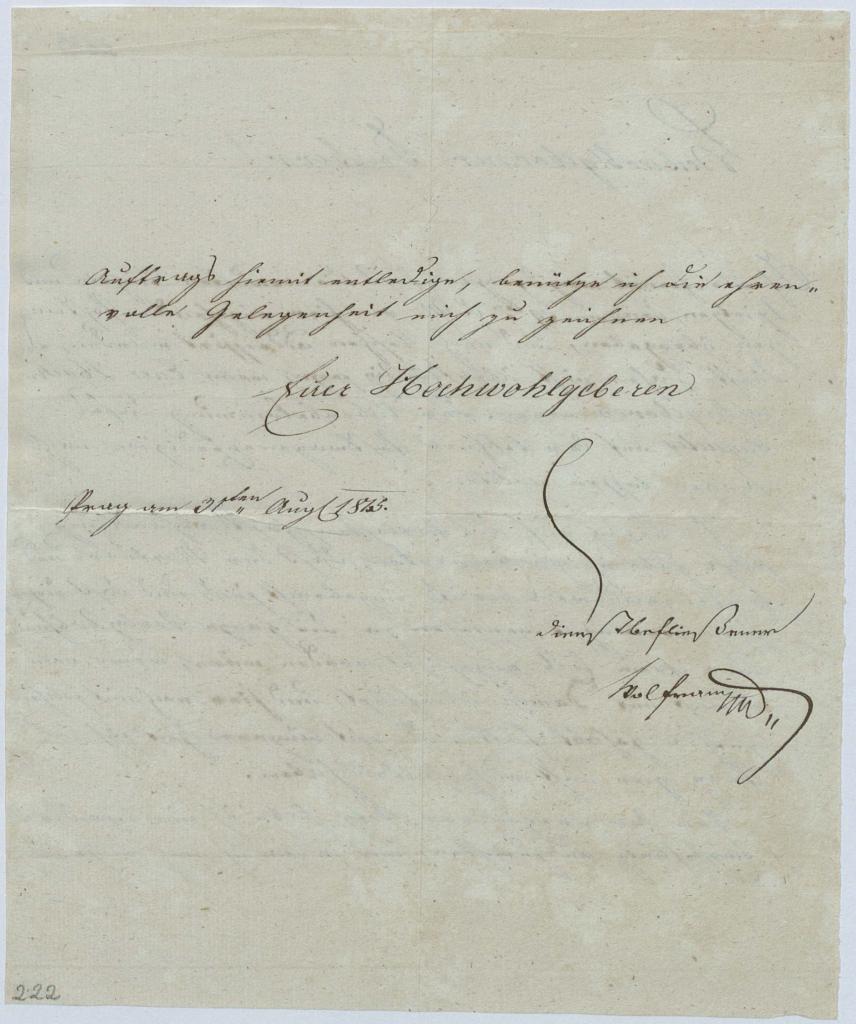 Auftrags hiemit entledige, benütze ich die ehren-
volle Gelegenheit mich zu zeichnen
Euer Hochwohlgeboren
Prag am 31ten Augst
dienstbefließener
Wolfram
222